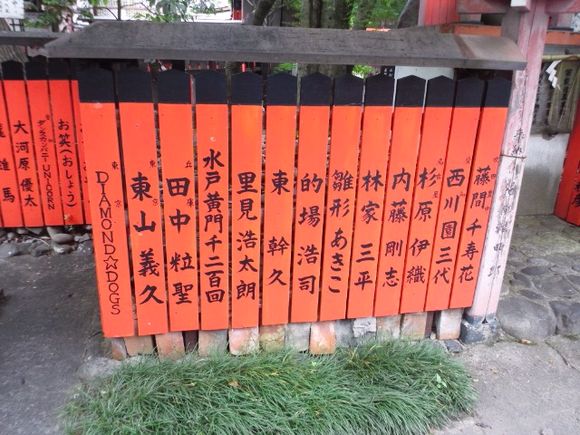 藤間千寿花
西川園三代
杉原伊織
内藤剛志
林家三平
雛形あきこ
的場浩司
東幹久
里見浩太朗
水戸黄門千二百回
田中粒聖
東山義久
DIAMOND☆DOGS
お笑(おしょう)
ダンスカンパニーUNICORN
大河原優太